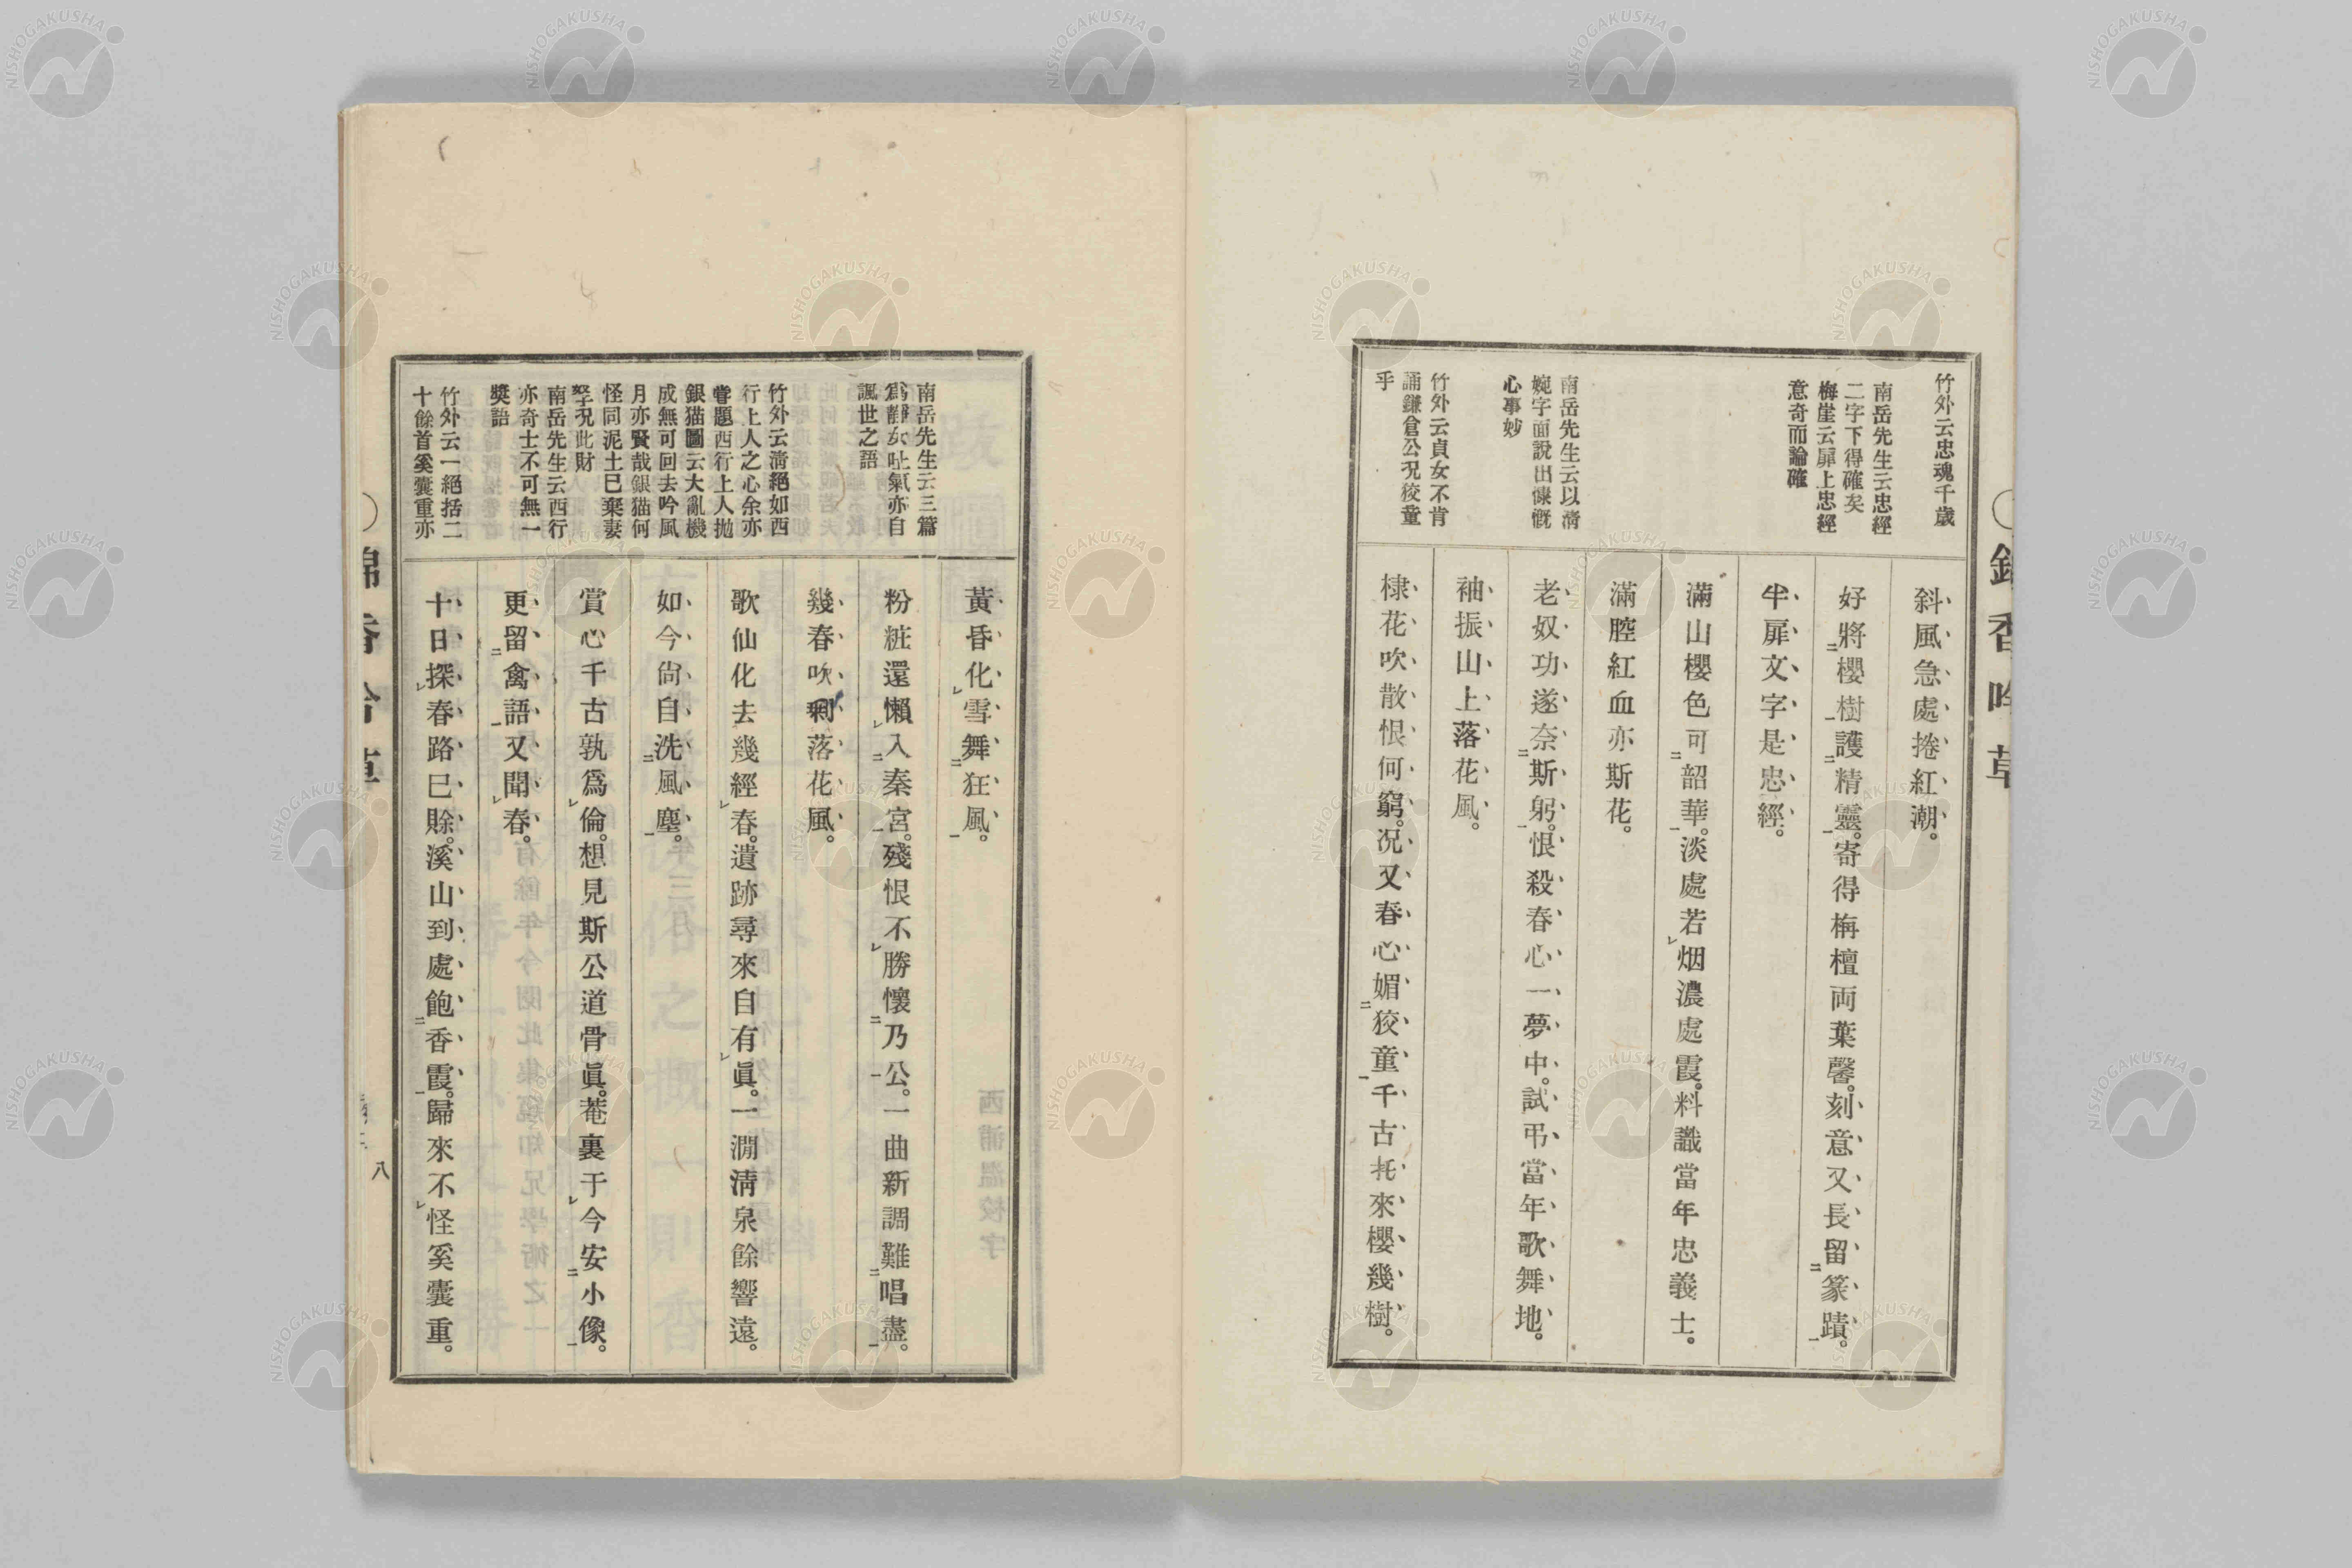 竹外云忠魂千歲
南岳先生云忠經
二字下得確矣
梅崖云扉上忠經
意奇而論確
南岳先生云以淸
婉字面說出慷慨
心事妙
竹外云貞女不肯
誦鎌倉公况狡童
乎
斜風急處捲紅潮。
好將櫻樹護精靈。寄得栴檀両葉馨。刻意又長留篆蹟。
半扉文字是忠經。
滿山櫻色可韶華。淡處若烟濃處霞。料識當年忠義士。
滿腔紅血亦斯花。
老奴功遂奈斯躬。恨殺春心一夢中。試弔當年歌舞地。
袖振山上落花風。
棣花吹散恨何窮。况又春心媚狡童。千古托來櫻幾樹。
南岳先生云三篇
爲靜女吐氣亦自
諷世之語
竹外云淸絕如西
行上人之心余亦
嘗題西行上人拋
銀猫圖云大亂機
成無可回去吟風
月亦賢哉銀猫何
怪同泥土已棄妻
孥况此財
南岳先生云西行
亦奇士不可無一
獎語
竹外云一絕括二
十餘首奚囊重亦
黃昏化雪舞狂風。
粉粧還懶入秦宮。殘恨不勝懷乃公。一曲新調難唱盡。
幾春吹剩落花風。
歌仙化去幾經春。遺跡尋來自有眞。一澗淸泉餘響遠。
如今尙自洗風塵。
賞心千古孰爲倫。想見斯公道骨眞。菴裏于今安小像。
更留禽語又聞春。
十日探春路已賒。溪山到處飽香霞。歸來不怪奚囊重。
八
NISHOGAKUSHA